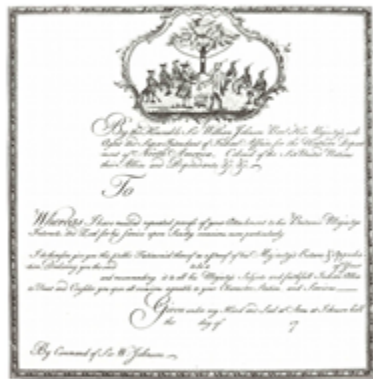 By the Honorable Sir William Johnson Bart. His Majesty's sole
Agent and Super Intendant of Indian Affairs for the Northern Depart
ment of North America, Colonel of the Six United Nations
their Allies and Dependants &c. &c.
To
Whereas I have received repeated proofs of your Attachment to his Britannic Majesty's
Interests, and Zeal for his Service upon Sundry occasions more particularly
I do therefore give you this public Testimonial thereof as a proof of his Majesty's Esteem & Approbation
Declaring you the said to be a of Your
and recommending it to all his Majesty's Subjects and faithful Indian Allies
to Treat and Consider you upon all occasions agreeable to your Character, Station, and Services
Given under my Hand and Seal at Arms at Johnson hall
the day of 17
By Command of Sir W: Johnson